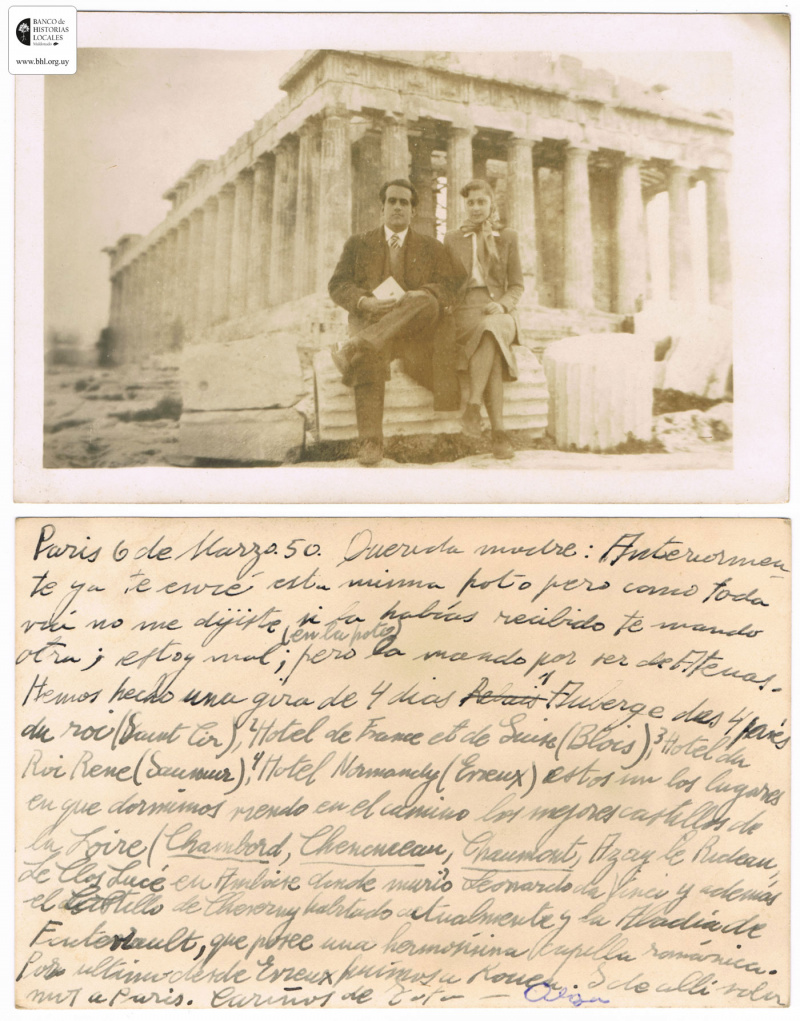 BANCO de
HISTORIAS
LOCALES
www.bhl.org.uy
Paris 6 de Marzo. 50. Querida madre: Anteriormen
te ya te envié esta misma foto pero como toda
vía no me dijiste, si la habías recibido te mando
(en la foto)
otra; estoy mal; pero la mando por ser de Atenas.
Hemos hecho una gira de 4 dias Relais 1) Auberge des 4 pavés
du roc (Saint Cir), 2 Hotel de France et de Suise (Blois), 3 Hotel du
Roi Rene (Saumur), 4 Hotel Normandy (Evreux) estos son los lugares
en que dormimos viendo en el camino los mejores castillos de
la Loire (Chambord, Chenonceau, Chaumont, Azay le Rideau,
Le Clos Lucé en Amboise donde murió Leonardo da Vinci y además
el Castillo de Cheverny habitado actualmente y la Abadía de
Fontevrault, que posee una hermosísima Capilla románica.
Por ultimo desde Evreux fuimos a Rouen. I de alli volvi
mos a Paris. Cariños de